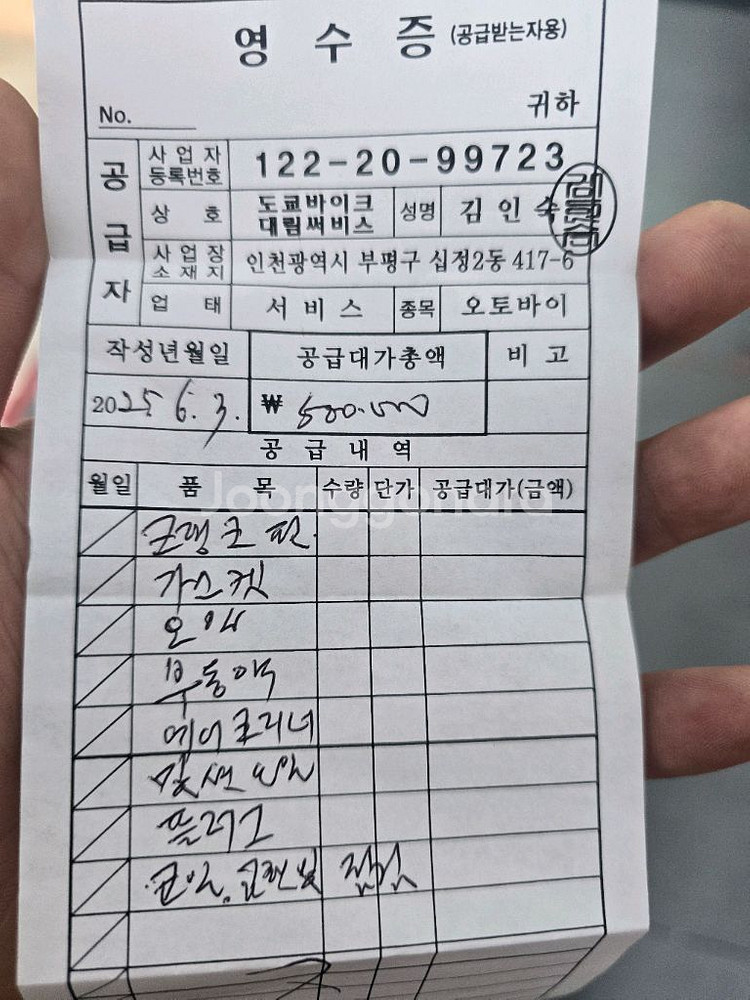 영 수 증 (공급받는자용)
No.
귀하
공급자
사업자등록번호 122-20-99723
상 호 도쿄바이크 대림써비스 성명 김인숙
사업장소재지 인천광역시 부평구 십정2동 417-6
업 태 서비스 종목 오토바이
작성년월일 공급대가총액 비 고
2025 6. 3. ₩ 500.000
공 급 내 역
월일 품 목 수량 단가 공급대가(금액)
Joonggonara
크랭크 판.
가스켓
오일
부동액
에어크리너
밋션오일
플러그
코일. 점검